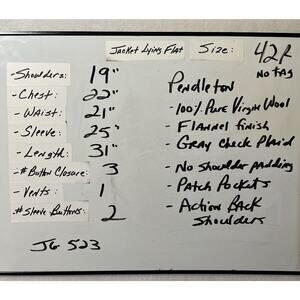 Jacket Lying Flat Size: 42R
No Tag
- Shoulders: 19"
- Chest: 22"
- Waist: 21"
- Sleeve: 25"
- Length: 31"
- # Button Closure: 3
- Vents: 1
# Sleeve Buttons: 2
JG 523
Pendleton
- 100% Pure Virgin Wool
- Flannel finish
- Gray Check Plaid
- No shoulder padding
- Patch Pockets
- Action Back
Shoulders